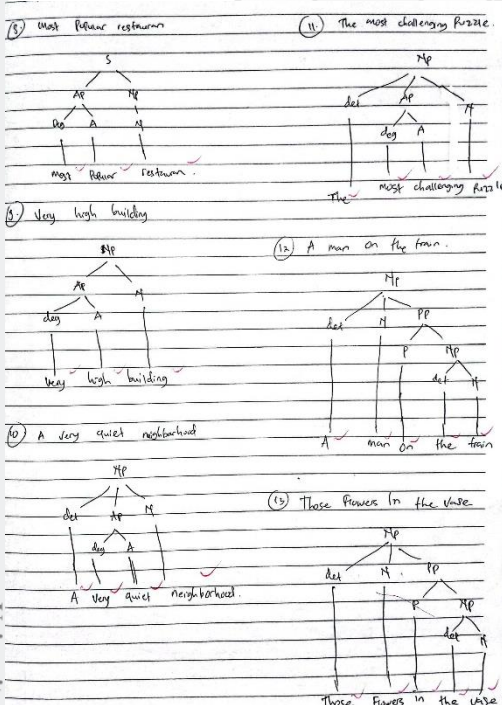 8. most Popular restauran
S
AP NP
Deg A N
most Popular restauran.
9. Very high building
NP
AP N
deg A
Very high building
10. A very quiet neighborhood
NP
det AP N
deg A
A very quiet neighborhood.
11. The most challenging Puzzle.
NP
det AP N
deg A
The most challenging Puzzle
12. A man on the train.
NP
det N PP
P NP
det N
A man on the train
13. Those Flowers In the vase
NP
det N PP
P NP
det N
Those Flowers in the vase